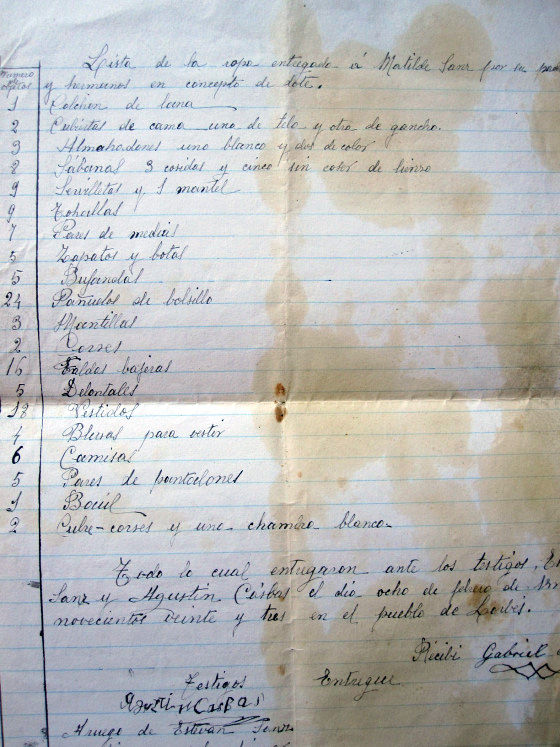 Lista de la ropa entregada á Matilde Sanz por su
Numero
y hermanos en concepto de dote.
1 Colchon de lana
2 Cubiertas de cama una de tela y otra de gancho.
3 Almahadones uno blanco y dos de color
8 Sábanas 3 cosidas y cinco sin color de lienzo
9 Servilletas y 1 mantel
9 Tohallas
7 Pares de medias
5 Zapatos y botas
5 Bufandas
24 Pañuelos de bolsillo
3 Mantillas
2 Corses
16 Faldas bajeras
5 Delontales
13 Vestidos
4 Blusas para vestir
6 Camisas
5 Pares de pantaelones
1 Baúl
2 Cubre-corses y una chambra blanca
Todo lo cual entregaron ante los testigos,
Sanz y Agustin Casbas el dia ocho de febrero de
novecientos veinte y tres en el pueblo de
Recibi Gabriel
Testigos Entregue
Agustin Casbas
Aruego de Estevan Sanz